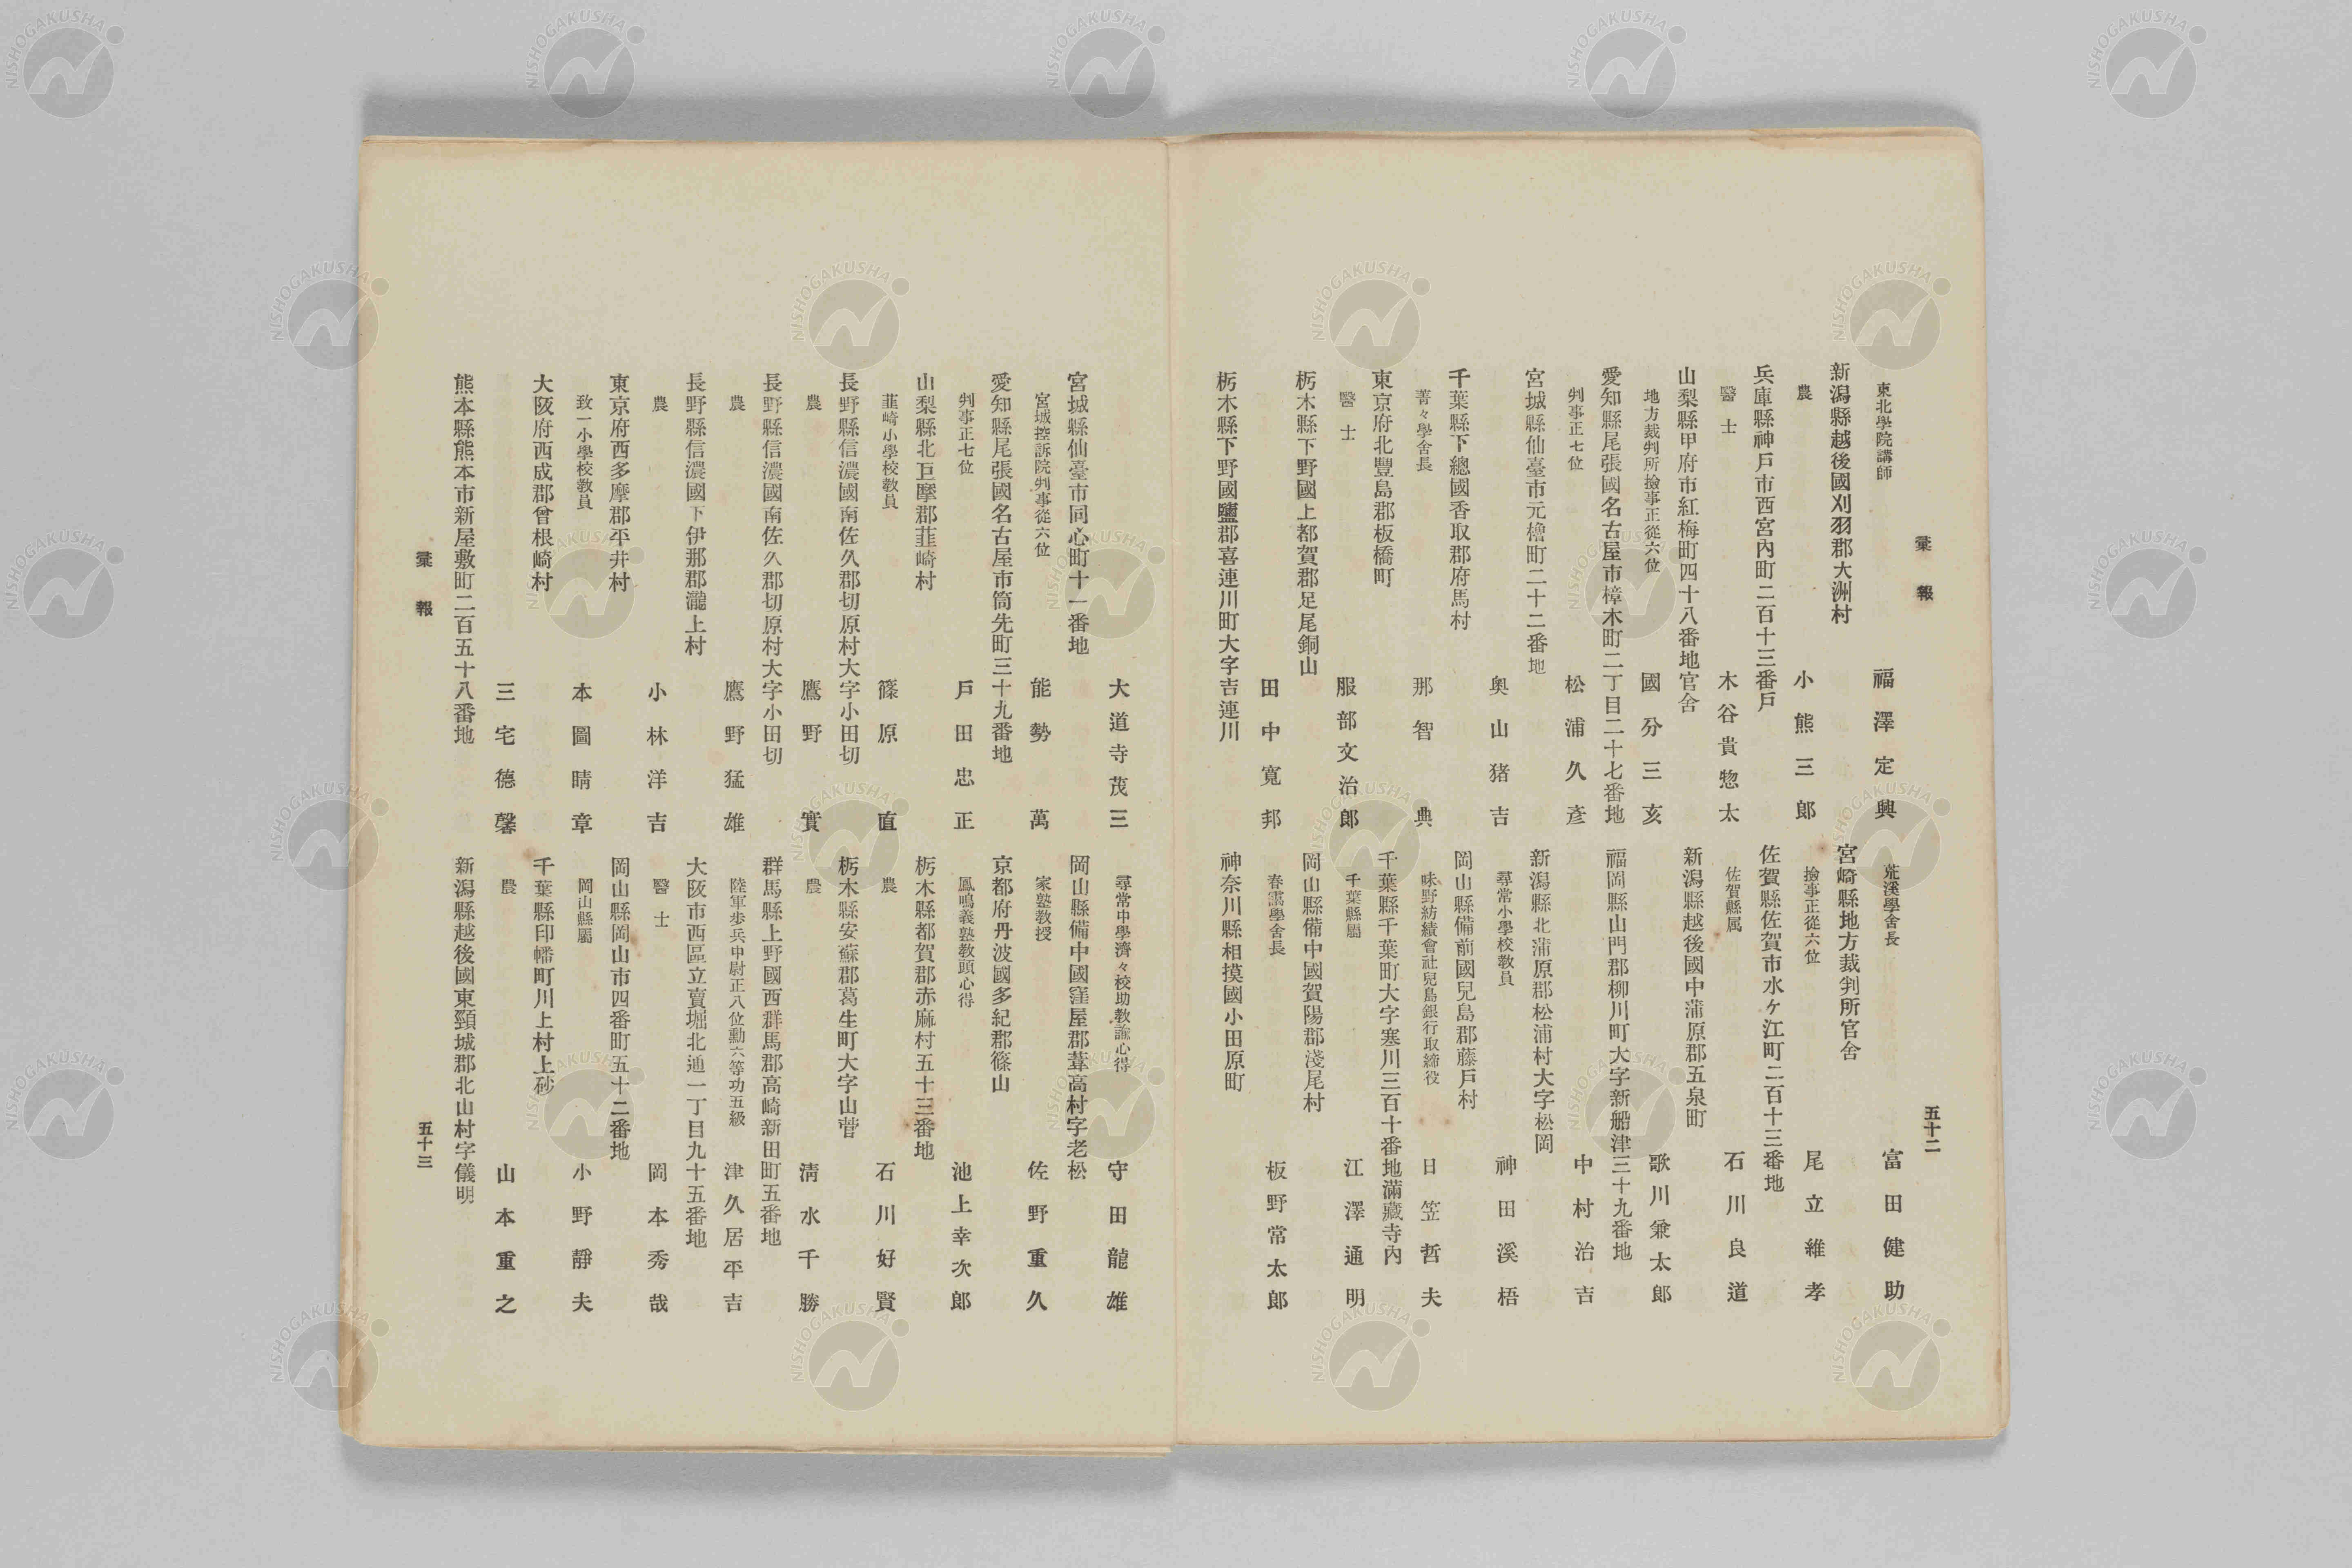 彙報
五十二
東北學院講師
福澤定興
新潟縣越後國刈羽郡大洲村
農
小熊三郎
兵庫縣神戶市西宮內町二百十三番戶
醫士
木谷貴惣太
山梨縣甲府市紅梅町四十八番地官舍
地方裁判所撿事正從六位
國分三亥
愛知縣尾張國名古屋市樟木町二丁目二十七番地
判事正七位
松浦久彥
宮城縣仙臺市元櫓町二十二番地
奧山猪吉
千葉縣下總國香取郡府馬村
菁々學舍長
那智典
東京府北豐島郡板橋町
醫士
服部文治郎
栃木縣下野國上都賀郡足尾銅山
田中寬邦
栃木縣下野國鹽郡喜連川町大字吉連川
荒溪學舍長
富田健助
宮崎縣地方裁判所官舍
撿事正從六位
尾立維孝
佐賀縣佐賀市水ケ江町二百十三番地
佐賀縣属
石川良道
新潟縣越後國中蒲原郡五泉町
歌川兼太郎
福岡縣山門郡柳川町大字新船津三十九番地
中村治吉
新潟縣北蒲原郡松浦村大字松岡
尋常小學校敎員
神田溪梧
岡山縣備前國兒島郡藤戶村
味野紡績會社兒島銀行取締役
日笠哲夫
千葉縣千葉町大字寒川三百十番地滿藏寺內
千葉縣屬
江澤通明
岡山縣備中國賀陽郡淺尾村
春靄學舍長
板野常太郎
神奈川縣相摸國小田原町
大道寺茂三
宮城縣仙臺市同心町十一番地
宮城控訴院判事從六位
能勢萬
愛知縣尾張國名古屋市筒先町三十九番地
判事正七位
戶田忠正
山梨縣北巨摩郡韮崎村
韮崎小學校敎員
篠原直
長野縣信濃國南佐久郡切原村大字小田切
農
鷹野實
長野縣信濃國南佐久郡切原村大字小田切
農
鷹野猛雄
長野縣信濃國下伊那郡瀧上村
農
小林洋吉
東京府西多摩郡平井村
致一小學校敎員
本圖晴章
大阪府西成郡曾根崎村
三宅德馨
熊本縣熊本市新屋敷町二百五十八番地
尋常中學濟々校助敎諭心得
守田龍雄
岡山縣備中國窪屋郡葦高村字老松
家塾敎授
佐野重久
京都府丹波國多紀郡篠山
鳳鳴義塾敎頭心得
池上幸次郎
栃木縣都賀郡赤麻村五十三番地
農
石川好賢
栃木縣安蘇郡葛生町大字山菅
農
淸水千勝
群馬縣上野國西群馬郡高崎新田町五番地
陸軍步兵中尉正八位勳六等功五級
津久居平吉
大阪市西區立賣堀北通一丁目九十五番地
醫士
岡本秀哉
岡山縣岡山市四番町五十二番地
岡山縣屬
小野靜夫
千葉縣印幡町川上村上砂
農
山本重之
新潟縣越後國東頸城郡北山村字儀明
彙報
五十三